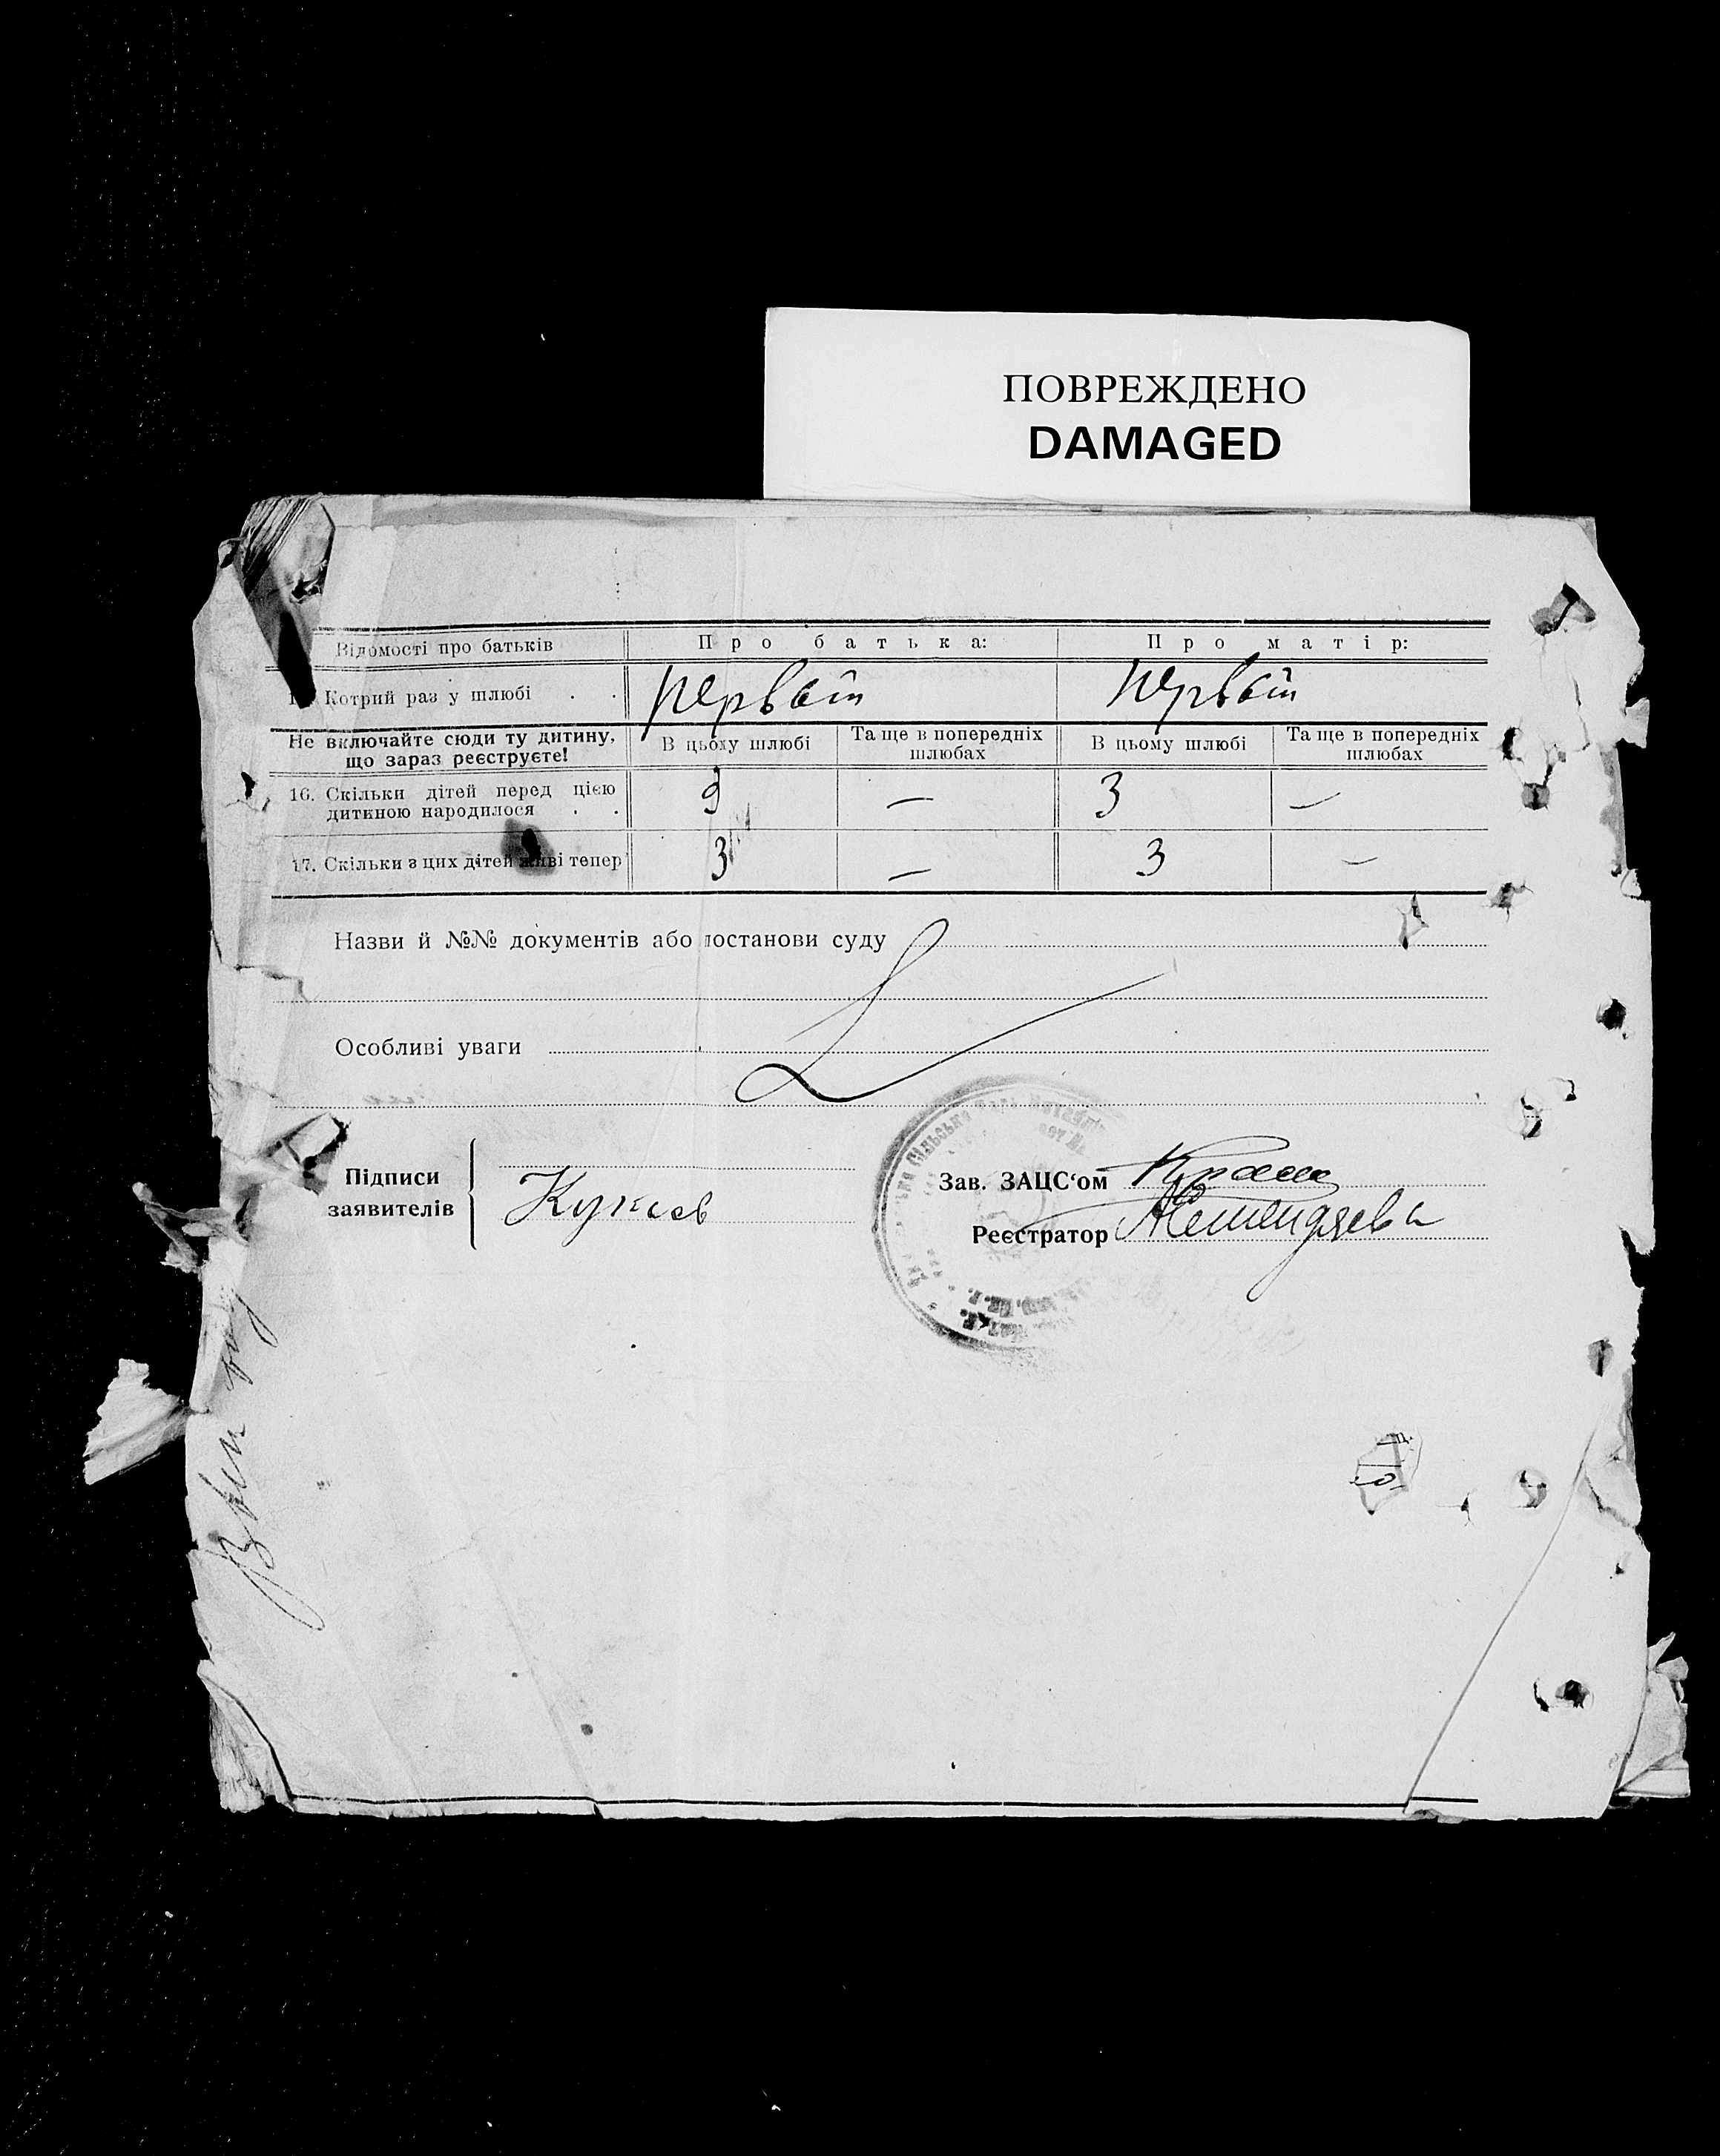 ПОВРЕЖДЕНО
DAMAGED
Відомості про батьків Про батька: Про матір:
Котрий раз у шлюбі . . первый первый
Не включайте сюди ту дитину, що зараз реєструєте! В цьому шлюбі Та ще в попередніх шлюбах В цьому шлюбі Та ще в попередніх шлюбах
16. Скільки дітей перед цією дитиною народилося . . 3 — 3 —
17. Скільки з цих дітей живі тепер 3 — 3 —
Назви й №№ документів або постанови суду
Особливі уваги
Підписи заявителів
Зав. ЗАЦС‘ом
Реєстратор